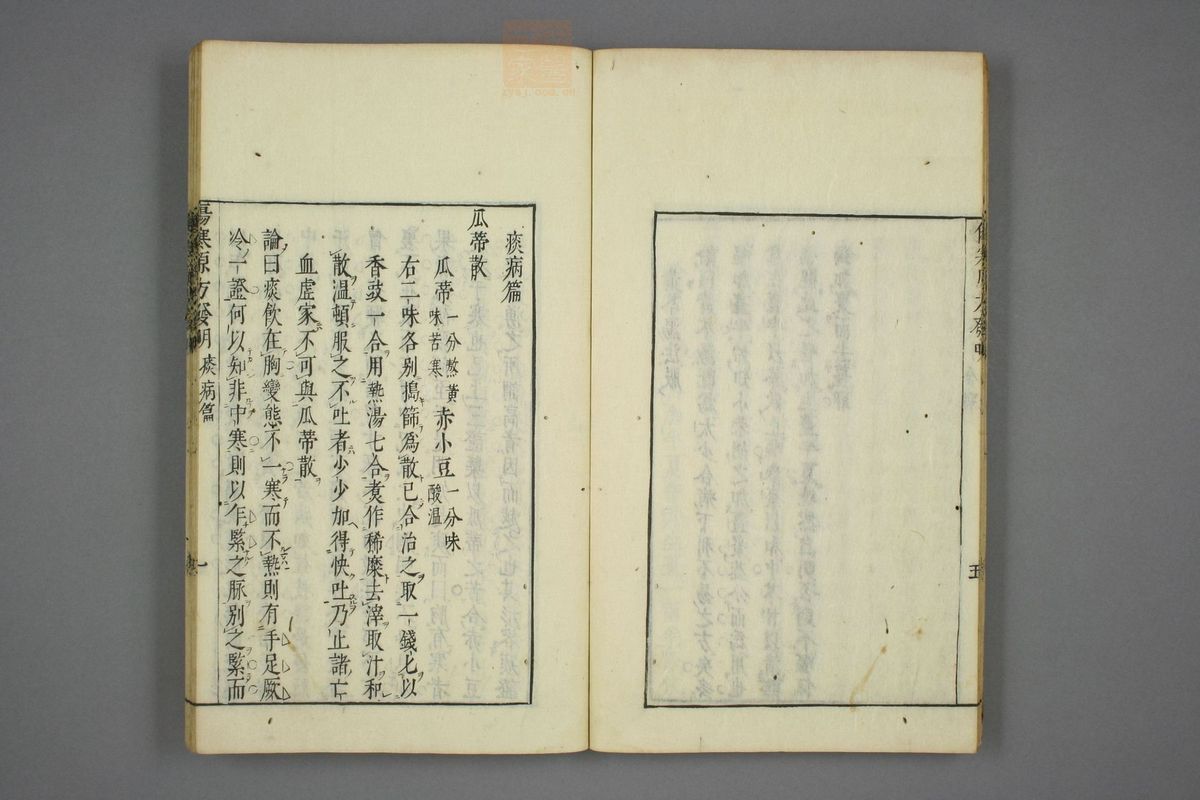 五
痰病篇
瓜蒂散
瓜蒂一分熬黃味苦寒 赤小豆一分味酸溫
右二味各别搗篩爲散已合治之取一錢匕以
香豉一合用熱湯七合煑作稀糜去滓取汁和
散溫頓服之不吐者少少加得快吐乃止諸亡
血虛家不可與瓜蒂散
論曰痰飲在胸變態不一寒而不熱則有手足厥
冷一證何以知非中寒則以乍緊之脉别之緊而
傷寒原方發明 痰病篇 一
zysj.com.cn